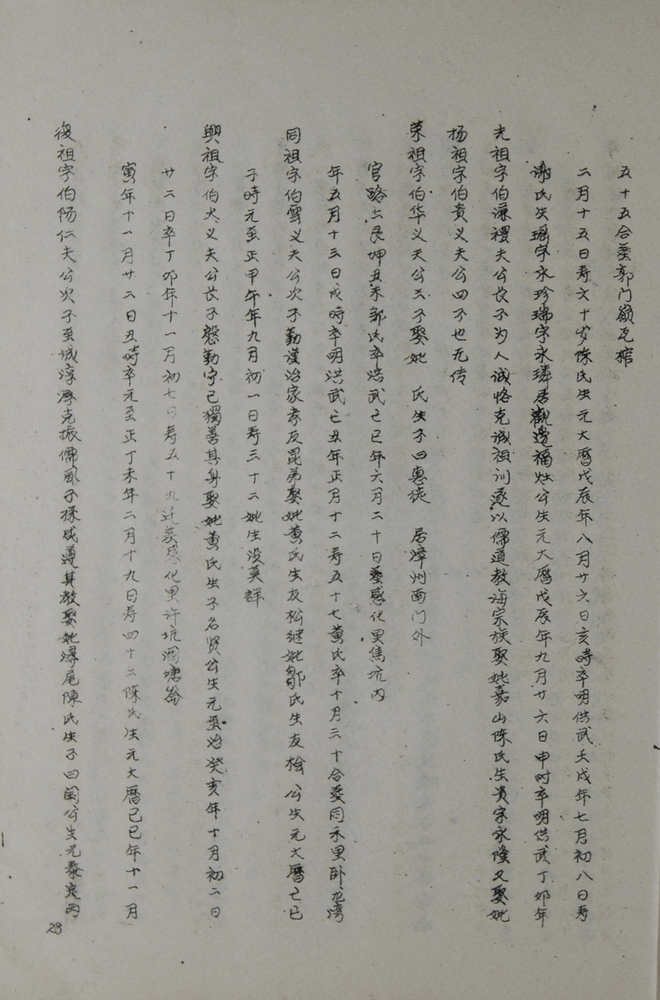 五十五合葬郭门嶺瓦棺
二月十五日寿六十岁陈氏生元大曆戊辰年八月廿六日亥時卒明洪武壬戌年七月初八日寿
谢氏生瑶字永珍瑞字永璘居觀邊福灶公生元大曆戊辰年九月廿六日申时卒明洪武丁卯年
光祖字伯谦禮夫公長子为人诚恪克诚祖训遂以儒道教诲宗族娶妣嘉山陈氏生贵字永隆又娶妣
杨祖字伯贵义夫公四子也无传
荣祖字伯华义夫公三子娶妣 氏生子四惠徒 居漳州西门外
官路上艮坤丑未邹氏卒洪武己巳年六月二十日葬感化里焦坑内
年五月十三日戌時卒明洪武己丑年正月十二寿五十七黄氏卒十月三十合葬同禾里卧龙湾
同祖字伯雲义夫公次子勤謹治家孝友昆弟娶妣黄氏生友松继妣邹氏生友桧公生元大曆己巳
子時元至正甲午年九月初一日寿三十二妣生没莫詳
興祖字伯大义夫公长子慇勤守己獨善其身娶妣黄氏生子名贤公生元至治癸亥年十月初二日
廿二日卒丁卯年十一月初七日寿五十九迁葬感化里许坑涸塘崙
寅年十一月廿二日丑時卒元至正丁未年二月十九日寿四十二陈氏生元大曆己巳年十一月
復祖字伯杨仁夫公次子至诚淳厚克振儒风子孫咸遵其教娶妣溪尾陳氏生子四国公生元泰定丙
23